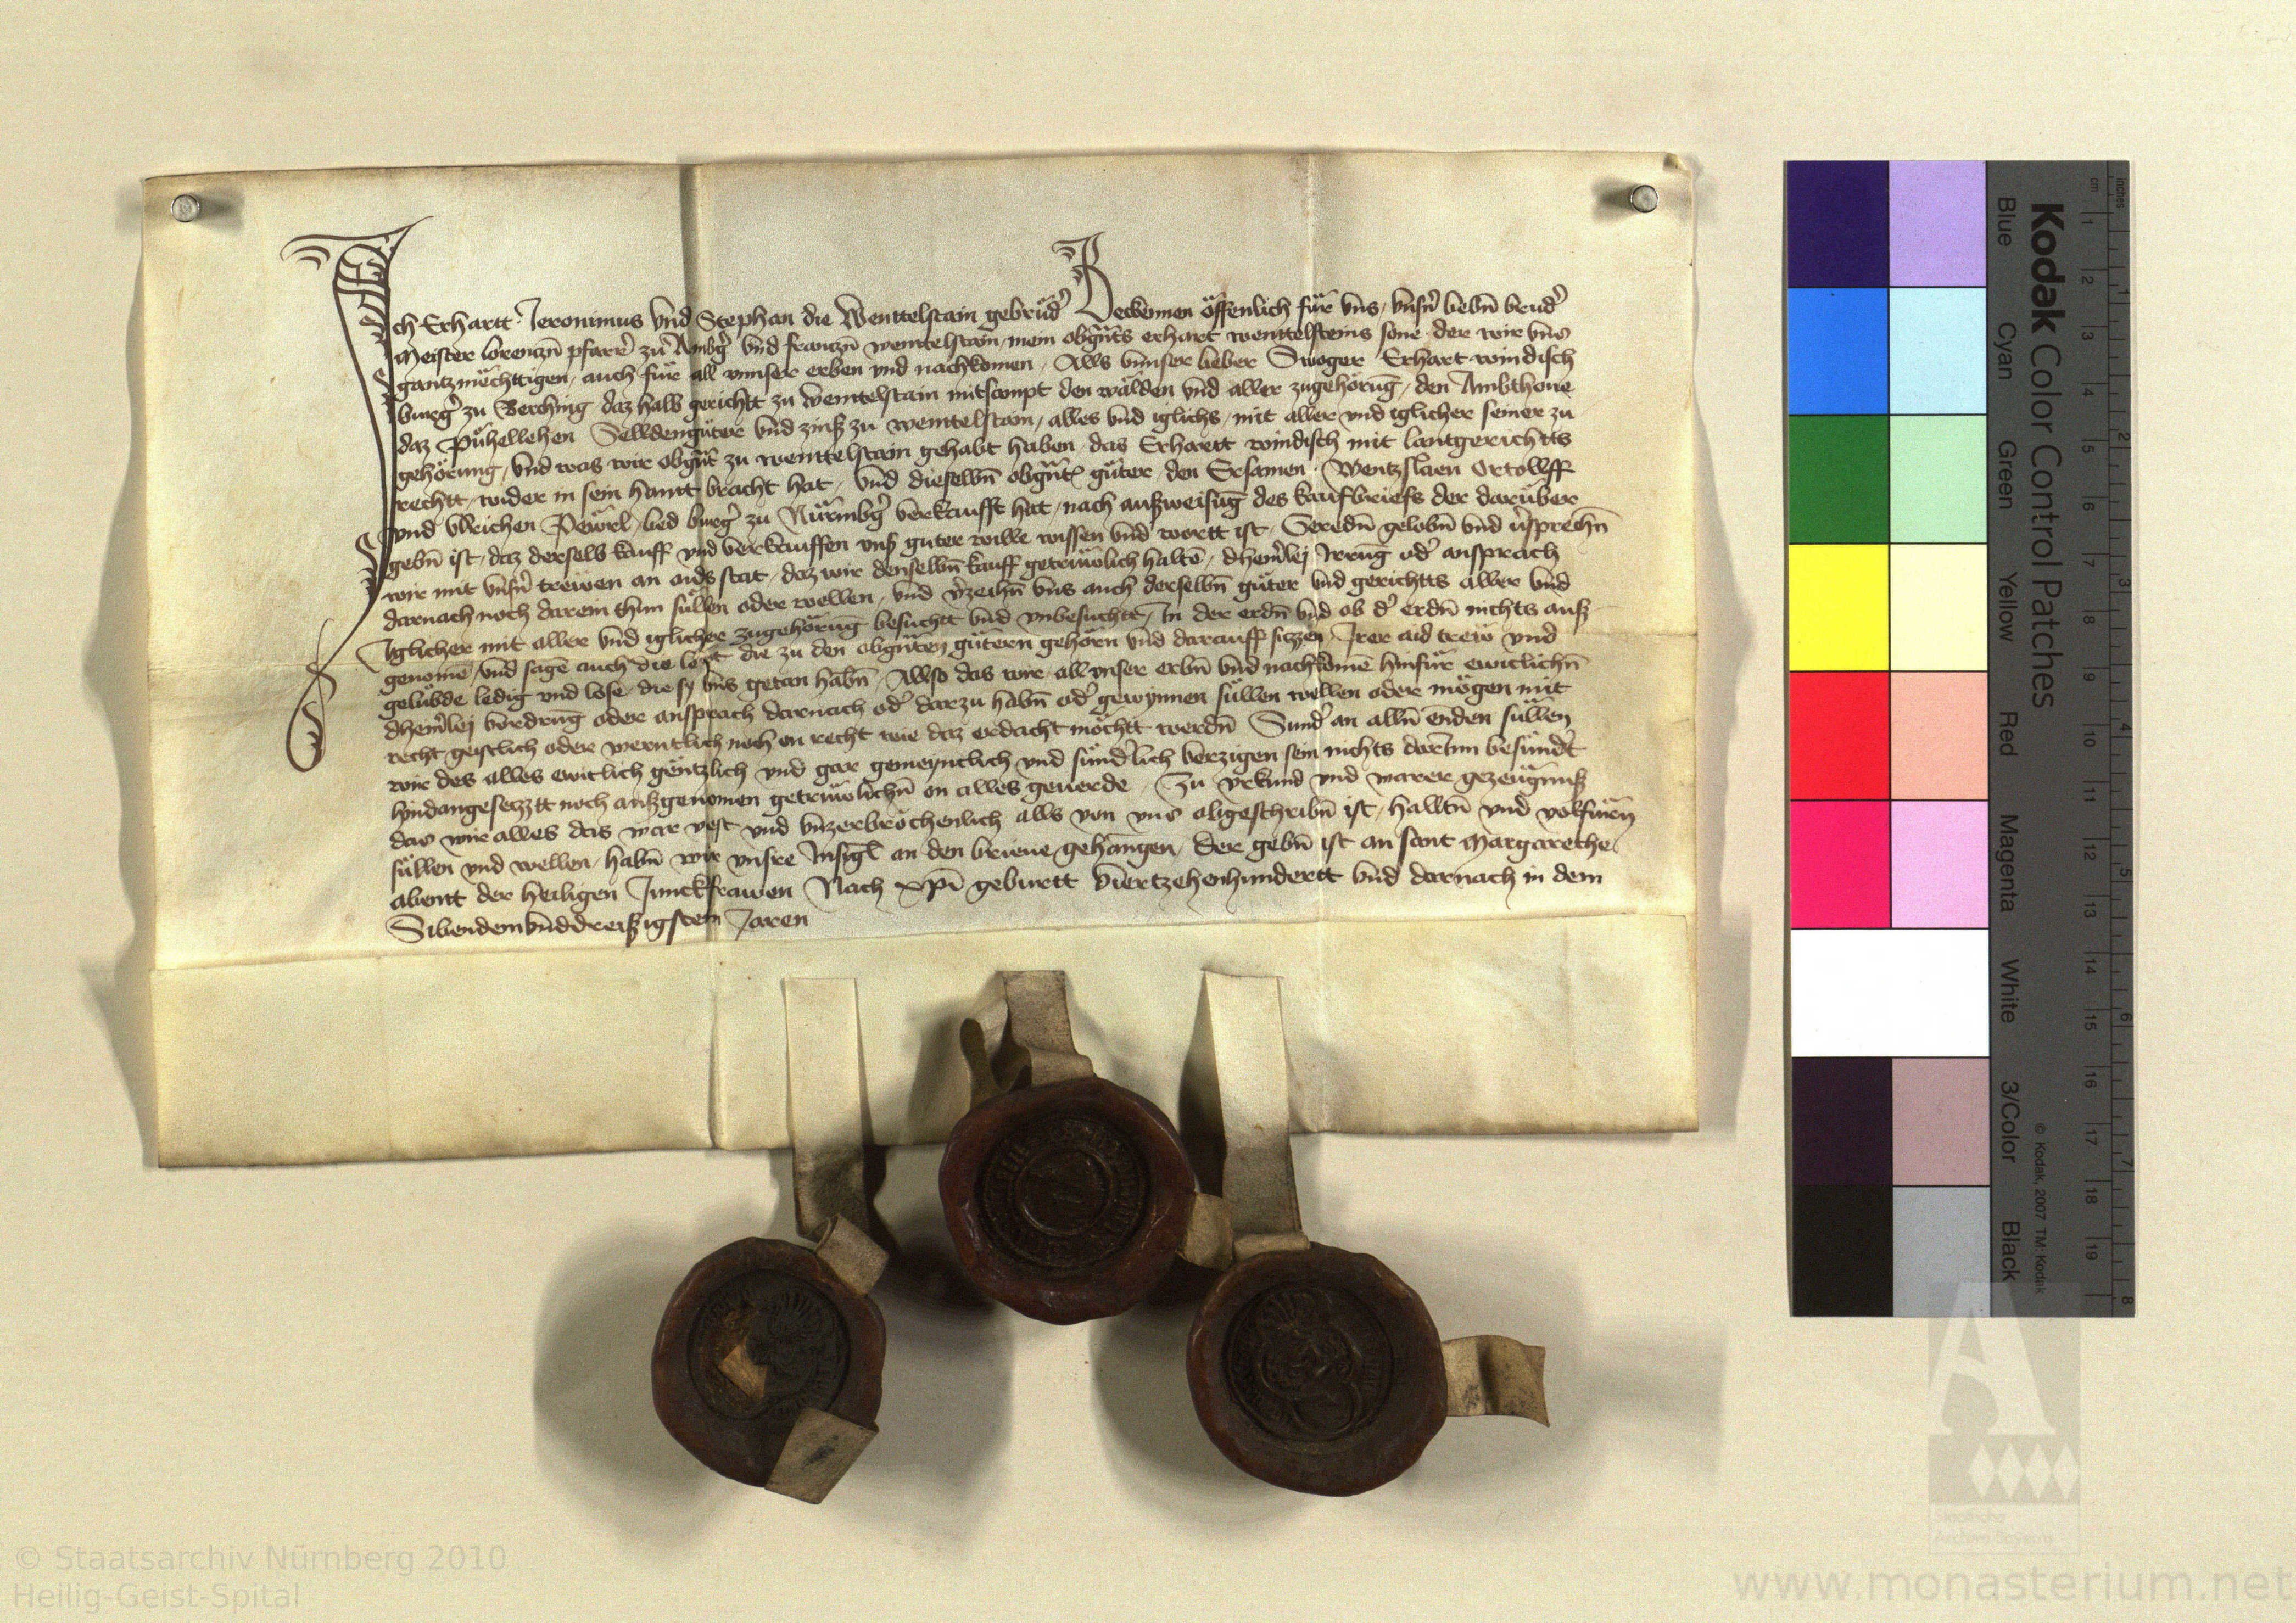 Ich Erhartt Jeronimus vnd Stephan die Wenttelstain gebrüd' Bekennen öffenlich für vns, vnsn' liebn̄ brud'
Meister lorenczn̄ pfarr' zu Ambg' vnd franczn̄ wenttelstain, mein obgnts erhart wenttelsteins sone der wir vns
gantz mechttigen, auch für all vnnser erben vnd nachkomen, Alls vnnser lieber Swoger Erhart windisch
burg' zu Berching daz halb gerichtt zu wenttelstain mitsampt den wälden vnd aller zugehörūg, den Ambthoue
daz Pühellehen Selldengüter vnd zinß zu wenttelstain, alles vnd iglichs, mit aller vnd iglicher seiner zu
gehörung, vnd was wir obgnt zu wenttelstain gehabt haben, das Erhartt windisch mit lantgerichtts
rechtt, wider in sein hannt bracht hat, vnd dieselbn̄ obgnt güter den Ersamen Wentzslaen Ortollff
vnd Vlreichen Pewrl, bed burg' zu Nürmbg' verkaufft hat, nach außweisūg des kaufbriefs der darüber
gebn̄ ist, daz derselb kauff vnd verkauffen vnß guter wille wissen vnd wortt ist, Geredn̄ gelobn̄ vnd v'sprechn̄
wir mit vnsn' trewen an aids stat, daz wir denselbn̄ kauff getriwlich haltē, dheinlej Irrūg od' ansprach
darnach noch darein thun süllen oder wellen, vnd v'zeihn̄ vns auch derselbn̄ güter vnd gerichtts aller vnd
Iglicher mit aller vnd iglicher zugehörūg besucht vnd vnbesuchtt, In der erdn̄ vnd ob d' erdn̄ nichts auß
genomē, vnd sage auch die lewt die zu den obgnten gütern gehörn vnd darauff siczen, Irer aid trew vnd
gelübde ledig vnd lose die sy vns getan habn̄, Allso das wir all vnser erbn̄ vnd nachkomē hinfür ewiclichn̄
dheinlej vordrūg oder ansprach darnach od' darzu habn̄ od' gewynnen süllen wellen oder mögen mit
recht geistlich oder werntlich noch on recht wie daz erdacht möchtt werdn̄ Sund' an alln̄ enden süllen
wir des alles ewiclich gentzlich vnd gar gemeynclich vnd sünd'lich verzigen sein nichts darinn besünd't
hyndangeseczt noch außgenomen getriwlichn̄ on alles geuerde, Zu vrkund vnd warer gezeugnuß
das wir alles das war vest vnd vnzerbrochenlich alls von vns obgeschribn̄ ist, halltn̄ vnd volfürn̄
süllen vnd wellen, habn̄ wir vnsre Insigl an den brieue gehangen, Der gebn̄ ist an sant Margarethe
abent der heiligen Junckfrawen Nach xpi geburtt viertzehenhundertt vnd darnach in dem
Sibendemvnddreißigstem Jaren
Kodak Color Control Patches
Blue
Cyan
Green
Yellow
Red
Magenta
White
3/Color
Black
© Kodak, 2007 TM: Kodak
cm 1 2 3 4 5 6 7 8 9 10 11 12 13 14 15 16 17 18 19
inches 1 2 3 4 5 6 7 8
© Staatsarchiv Nürnberg 2010
Heilig-Geist-Spital
Staatliche
Archive Bayerns
www.monasterium.net